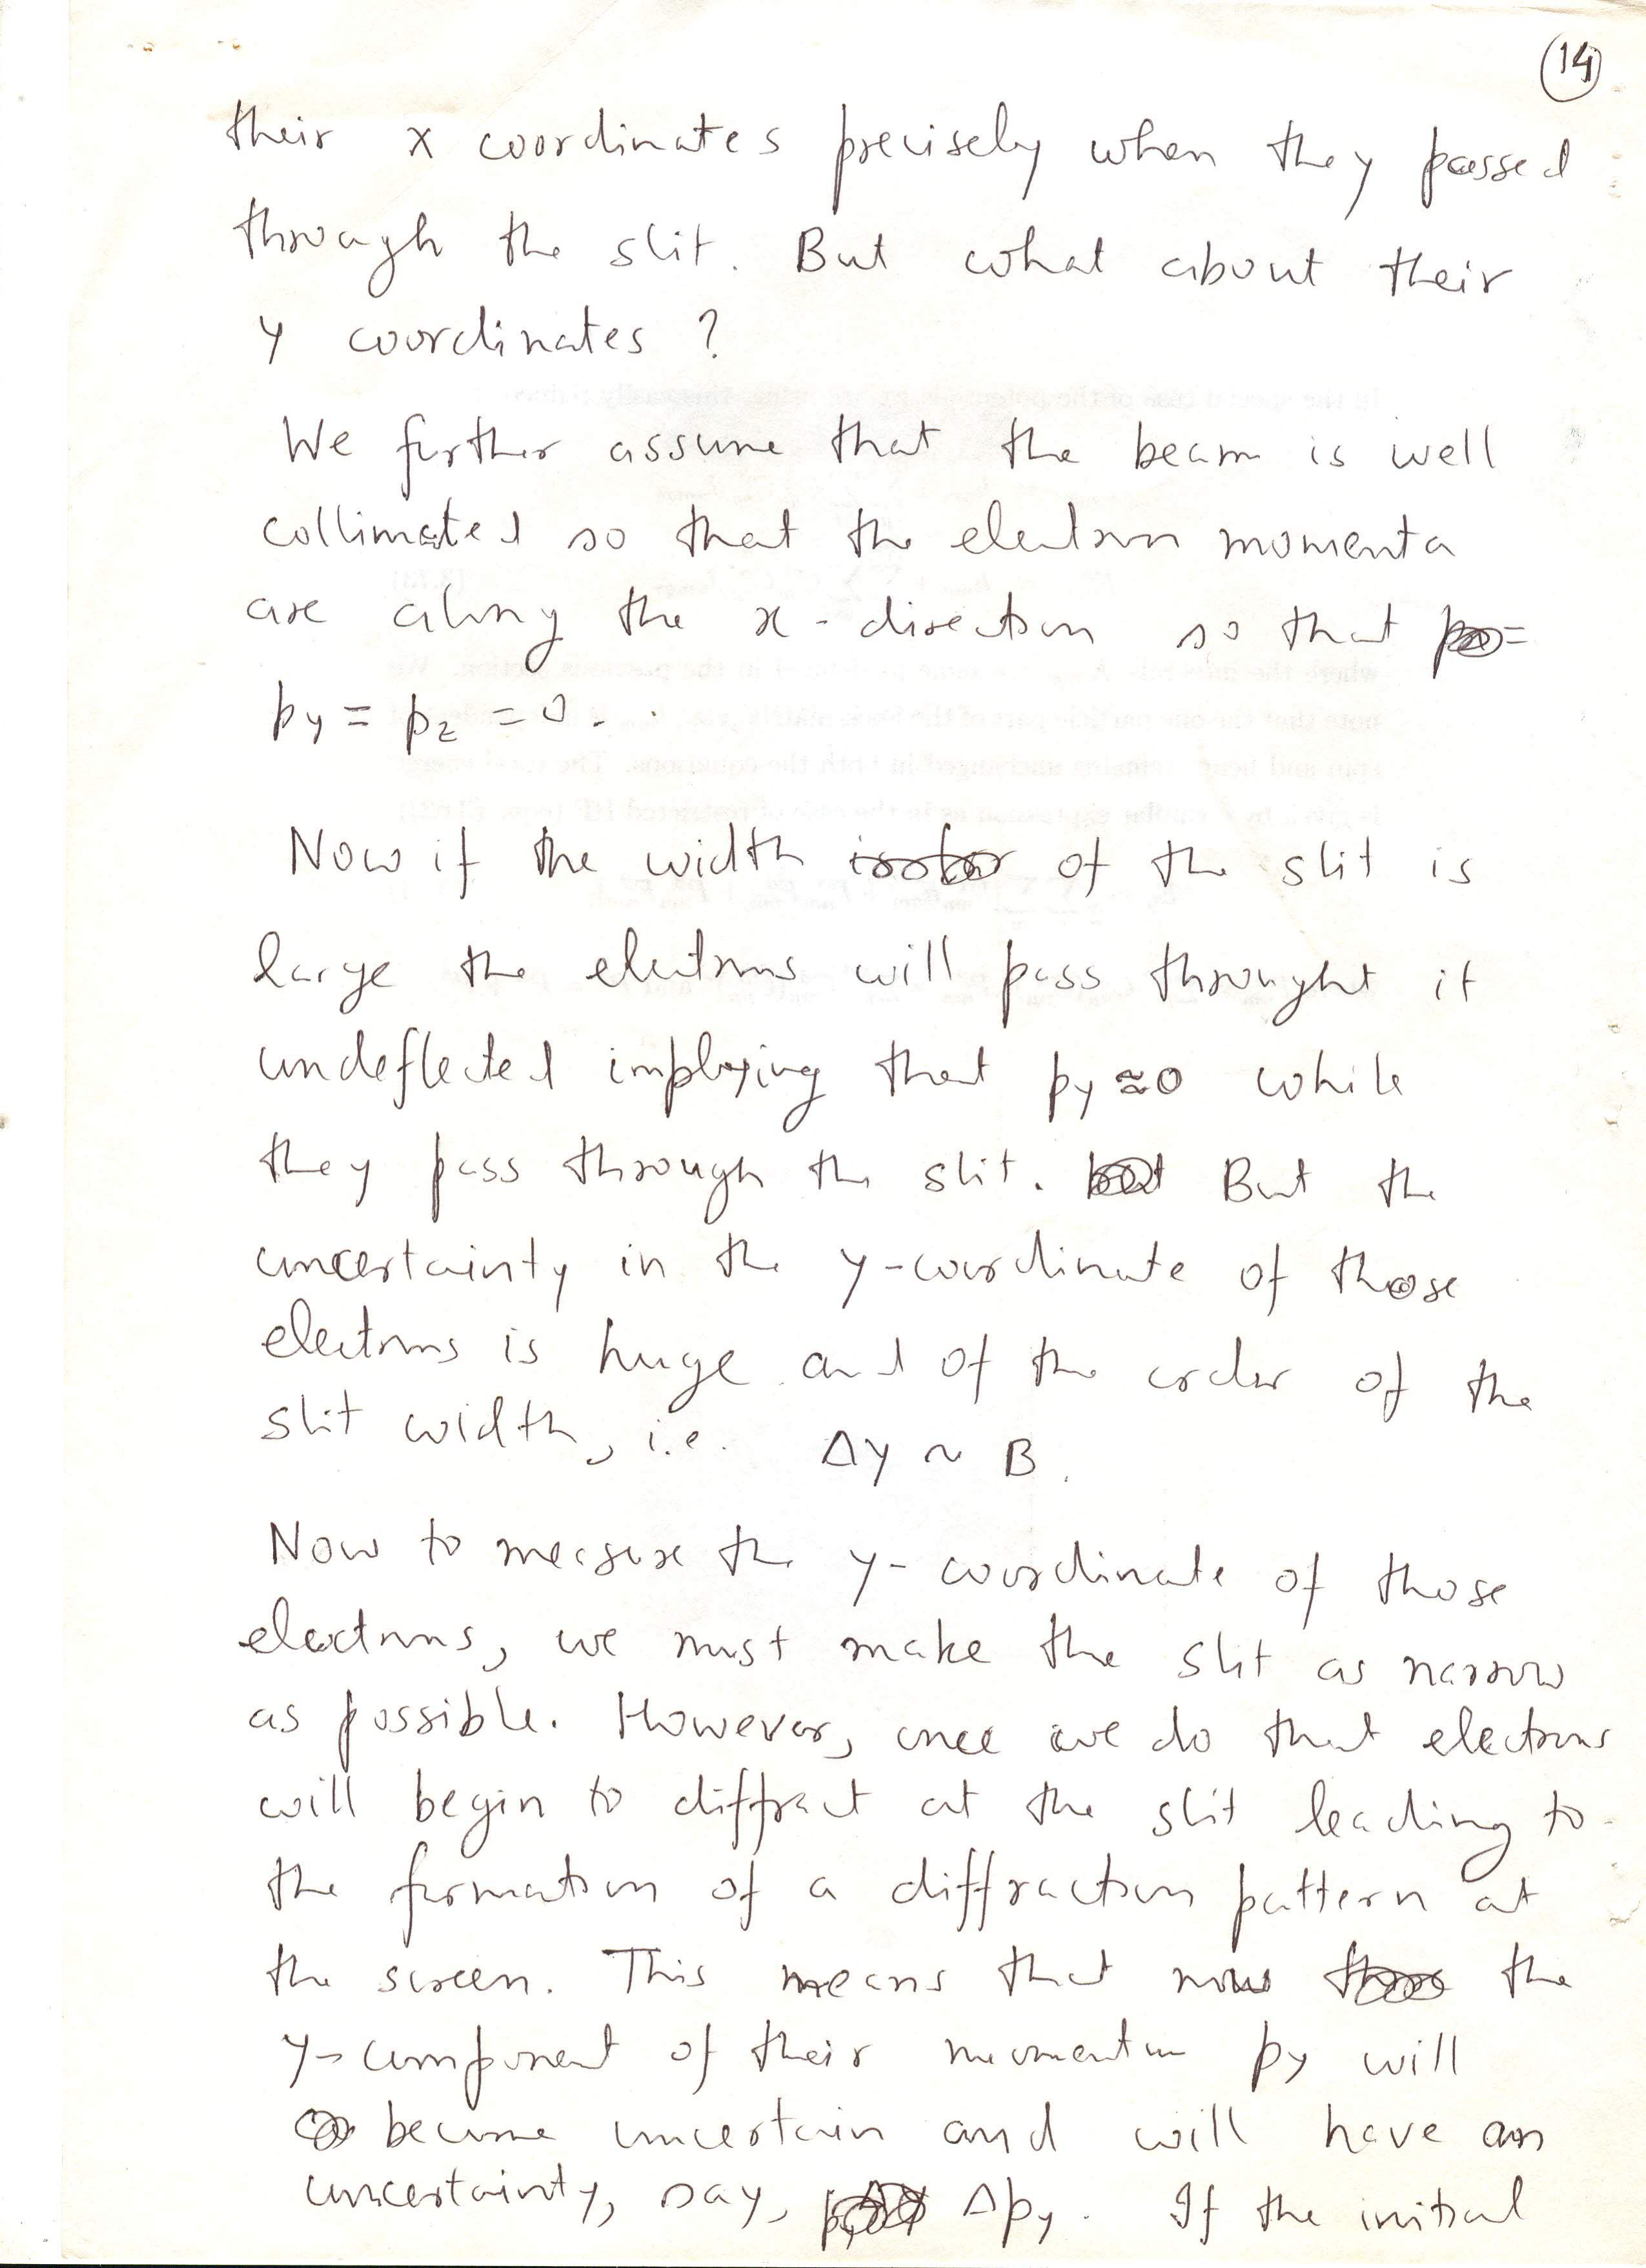 14
their x coordinates precisely when they passed
through the slit. But what about their
y coordinates ?
We further assume that the beam is well
collimated so that the electron momenta
are along the x-direction so that =
py = pz = 0.
Now if the width of the slit is
large the electrons will pass throught it
undeflected implying that py ≈ 0 while
they pass through the slit. But the
uncertainty in the y-coordinate of those
electrons is huge and of the order of the
slit width, i.e. Δy ~ B.
Now to measure the y-coordinate of those
electrons, we must make the slit as narrow
as possible. However, once we do that electrons
will begin to diffract at the slit leading to
the formation of a diffraction pattern at
the screen. This means that now the
y-component of their momentum py will
become uncertain and will have an
uncertainty, say, Δpy. If the initial